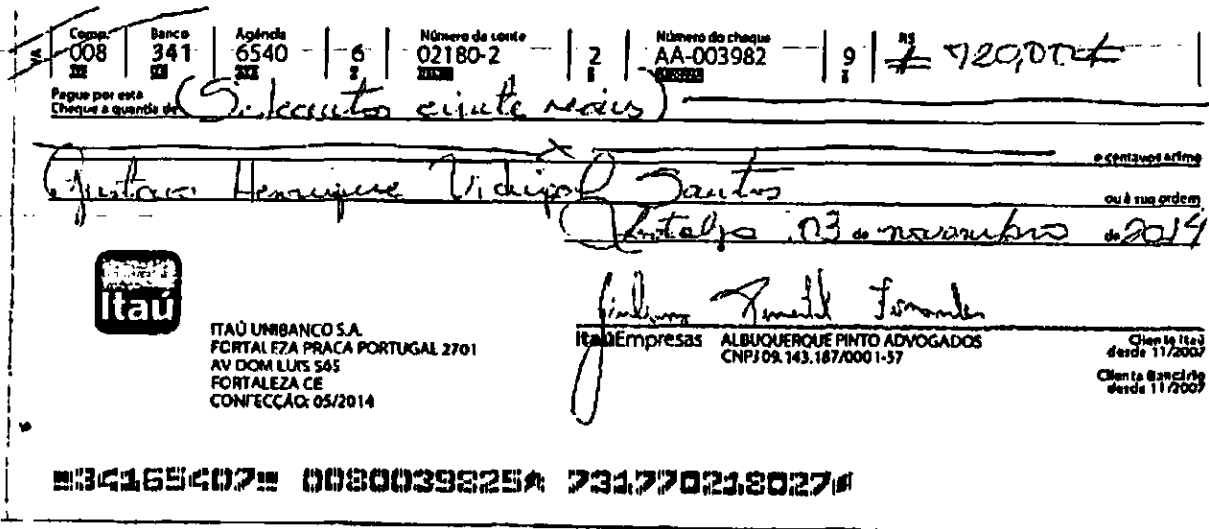 Comp. Banco Agência Número da conta Número do cheque R$
008 341 6540 6 02180-2 2 AA-003982 9 # 720,00 #
Pague por esta
Cheque a quantia de (Setecentos e vinte reais)
e centavos acima
Gustavo Henrique Vidigal Santos ou à sua ordem
Fortaleza 03 de novembro de 2014
Itaú
ITAÚ UNIBANCO S.A.
FORTALEZA PRACA PORTUGAL 2701
AV DOM LUIS 565
FORTALEZA CE
CONFECÇÃO: 05/2014
Pimentel Fernandes
ItaúEmpresas ALBUQUERQUE PINTO ADVOGADOS
CNPJ 09.143.187/0001-57
Cliente Itaú
desde 11/2007
Cliente Bancário
desde 11/2007
34165407 0080039825 731770218027